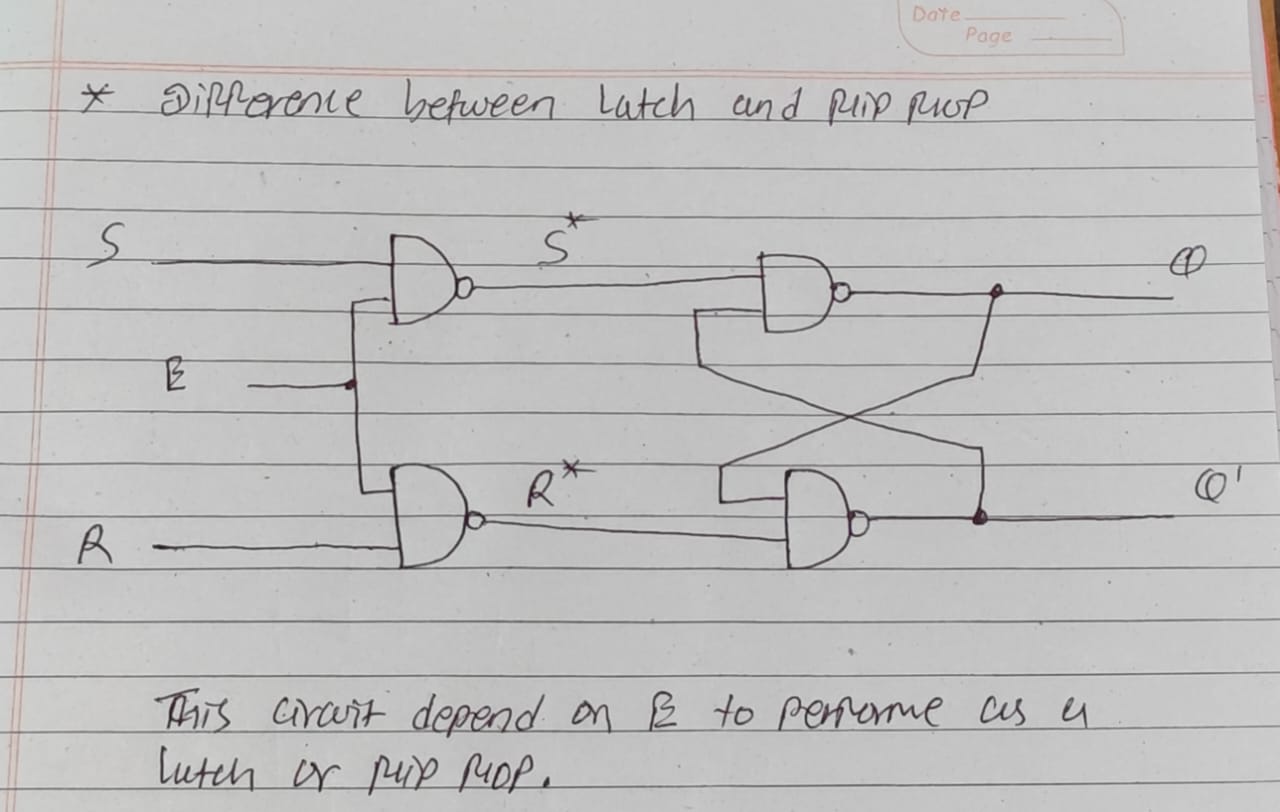 Date
Page
* Difference between Latch and Flip Flop
S
S*
Q
E
R*
Q'
R
This circuit depend on E to performe as a
latch or flip flop.